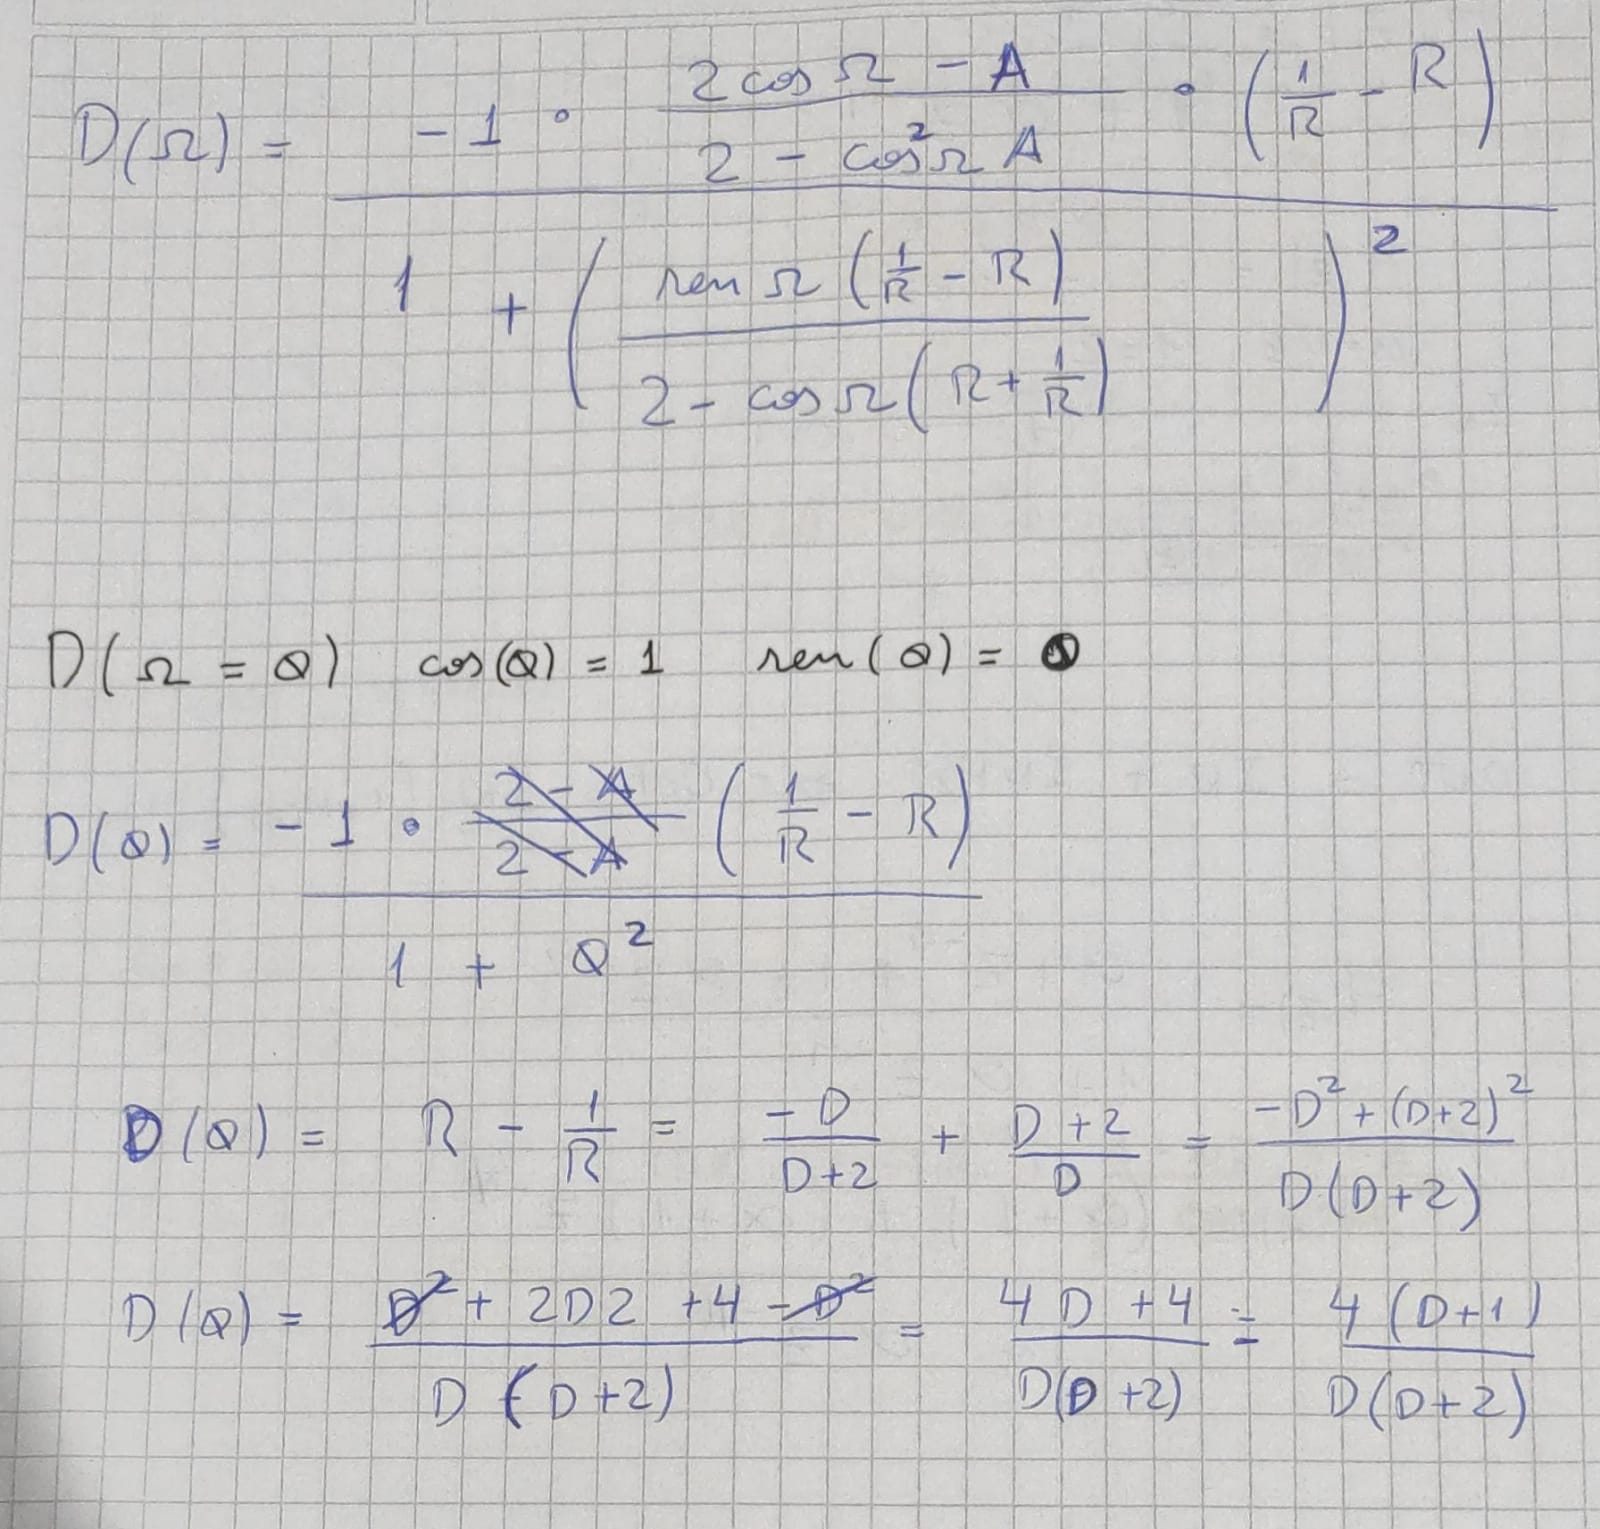 D(Ω) = (-1 · (2 cos Ω - A)/(2 - cos²Ω A) · (1/R - R)) / (1 + (sen Ω (1/R - R)/(2 - cos Ω (R + 1/R)))²)
D(Ω = 0) cos(0) = 1 sen(0) = 0
D(0) = (-1 · (2 - A)/(2 - A) (1/R - R)) / (1 + 0²)
D(0) = R - 1/R = -D/(D+2) + (D+2)/D = (-D² + (D+2)²)/(D(D+2))
D(0) = (D² + 2D2 + 4 - D²)/(D(D+2)) = (4D + 4)/(D(D+2)) = 4(D+1)/(D(D+2))